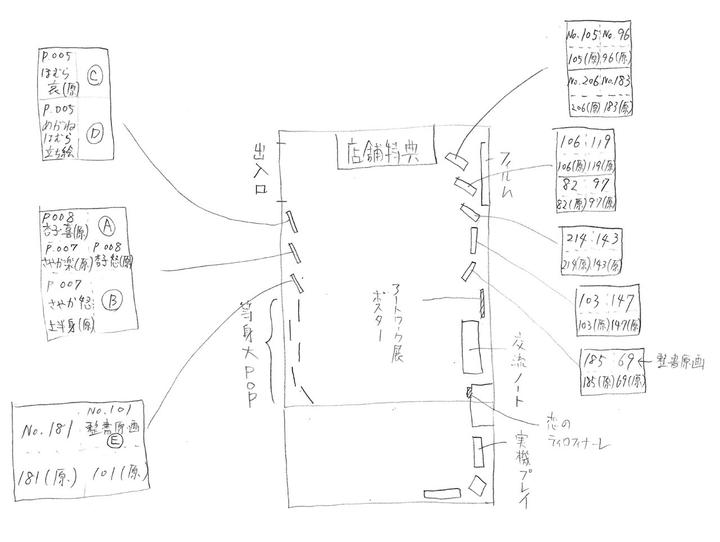 P.005
ほむら
哀(原)
C
P.005
めがね
ほむら
立ち絵
D
P008
杏子喜(原)
A
P.007 P008
さやか楽(原) 杏子怒(原)
P007
さやか怒
上半身(原)
B
No.181
No.101
整書原画
E
181(原.)
101(原.)
出入口
店舗特典
フィルム
等身大POP
アートワーク展
ポスター
交流ノート
恋の
ティロフィナーレ
実機プレイ
No.105 No.96
105(原) 96(原)
No.206 No.183
206(原) 183(原)
106 119
106(原) 119(原)
82 97
82(原) 97(原)
214 143
214(原) 143(原)
103 147
103(原) 147(原)
185 69 ← 整書原画
185(原) 69(原)